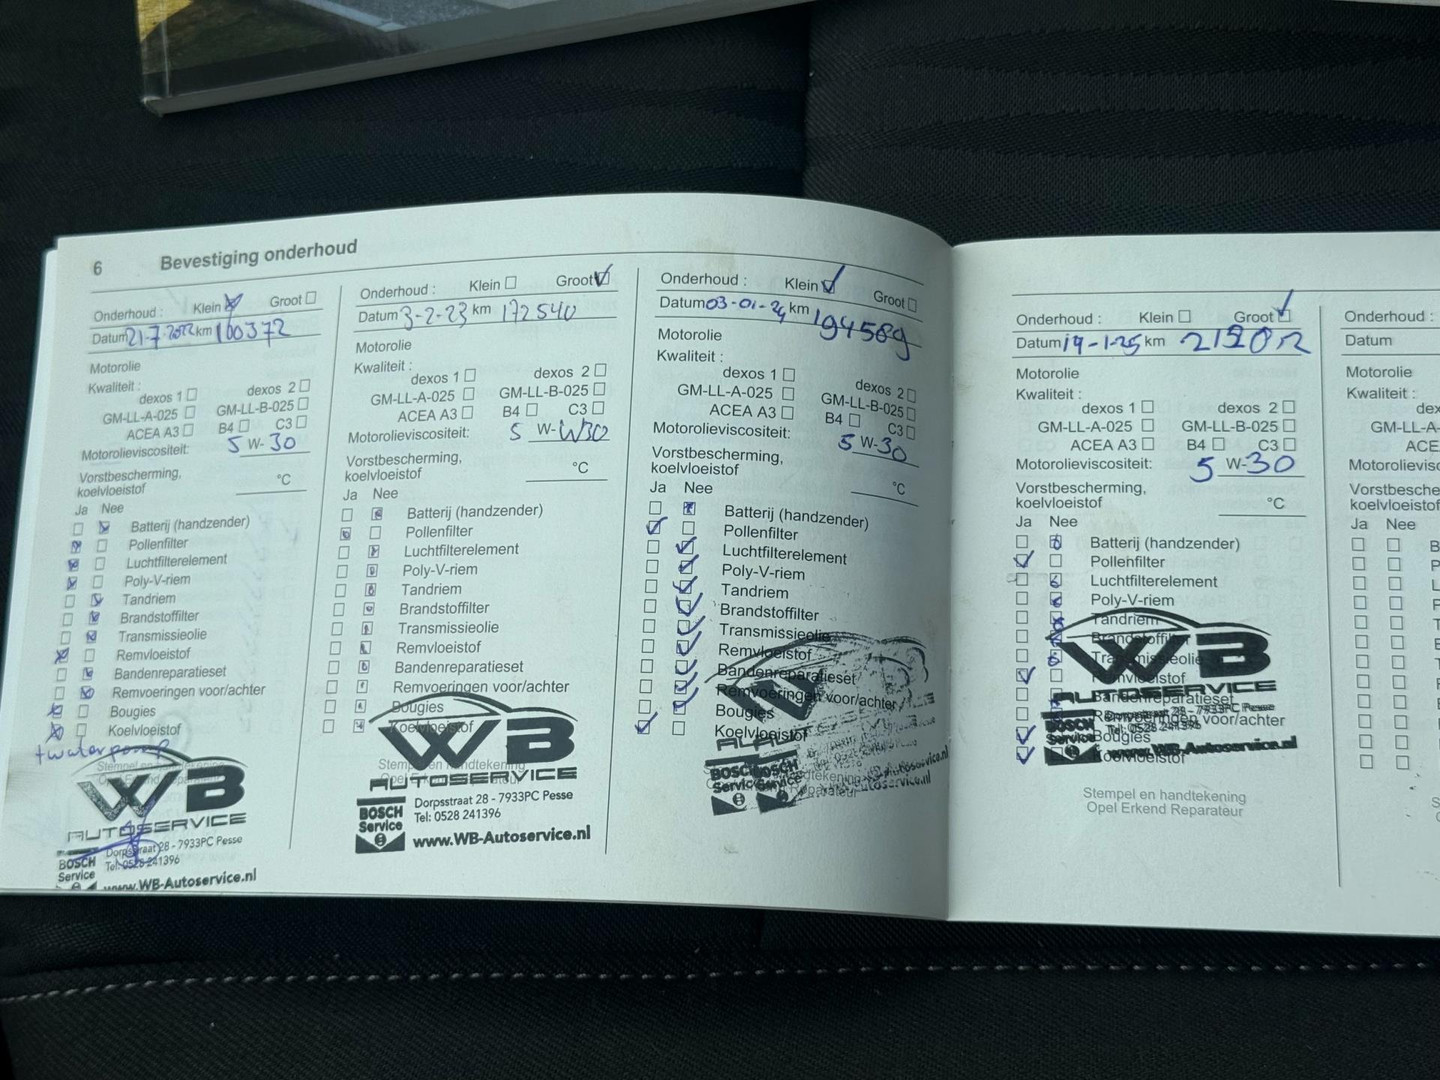 6 Bevestiging onderhoud
Onderhoud : Klein Groot
Datum 21-7-2022 km 160372
Motorolie
Kwaliteit :
dexos 1 dexos 2
GM-LL-A-025 GM-LL-B-025
ACEA A3 B4 C3
Motorolieviscositeit: 5 W-30
Vorstbescherming,
koelvloeistof °C
Ja Nee
Batterij (handzender)
Pollenfilter
Luchtfilterelement
Poly-V-riem
Tandriem
Brandstoffilter
Transmissieolie
Remvloeistof
Bandenreparatieset
Remvoeringen voor/achter
Bougies
Koelvloeistof
+ waterpomp
WB
AUTOSERVICE
BOSCH
Service
Dorpsstraat 28 - 7933PC Pesse
Tel: 0528 241396
www.WB-Autoservice.nl
Onderhoud : Klein Groot
Datum 3-2-23 km 172540
Motorolie
Kwaliteit :
dexos 1 dexos 2
GM-LL-A-025 GM-LL-B-025
ACEA A3 B4 C3
Motorolieviscositeit: 5 W-W30
Vorstbescherming,
koelvloeistof °C
Ja Nee
Batterij (handzender)
Pollenfilter
Luchtfilterelement
Poly-V-riem
Tandriem
Brandstoffilter
Transmissieolie
Remvloeistof
Bandenreparatieset
Remvoeringen voor/achter
Bougies
Koelvloeistof
WB
AUTOSERVICE
BOSCH
Service
Dorpsstraat 28 - 7933PC Pesse
Tel: 0528 241396
www.WB-Autoservice.nl
Onderhoud : Klein Groot
Datum 03-01-24 km 194589
Motorolie
Kwaliteit :
dexos 1 dexos 2
GM-LL-A-025 GM-LL-B-025
ACEA A3 B4 C3
Motorolieviscositeit: 5 W-30
Vorstbescherming,
koelvloeistof °C
Ja Nee
Batterij (handzender)
Pollenfilter
Luchtfilterelement
Poly-V-riem
Tandriem
Brandstoffilter
Transmissieolie
Remvloeistof
Bandenreparatieset
Remvoeringen voor/achter
Bougies
Koelvloeistof
BOSCH
Service
Onderhoud : Klein Groot
Datum 19-1-25 km
Motorolie
Kwaliteit :
dexos 1 dexos 2
GM-LL-A-025 GM-LL-B-025
ACEA A3 B4 C3
Motorolieviscositeit: 5 W-30
Vorstbescherming,
koelvloeistof °C
Ja Nee
Batterij (handzender)
Pollenfilter
Luchtfilterelement
Poly-V-riem
Tandriem
Brandstoffilter
Transmissieolie
Remvloeistof
Bandenreparatieset
Remvoeringen voor/achter
Bougies
Koelvloeistof
WB
AUTOSERVICE
BOSCH
Service
www.WB-Autoservice.nl
Stempel en handtekening
Opel Erkend Reparateur
Onderhoud :
Datum
Motorolie
Kwaliteit :
Ja Nee